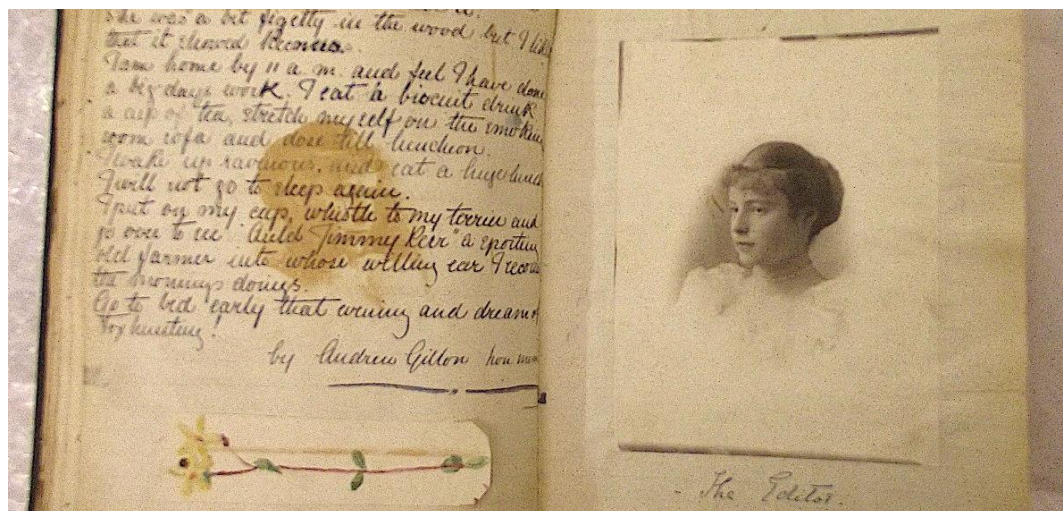 She was a bit figetty in the wood but I like
that it showed Keeness.
I am home by 11 a.m. and feel I have done
a big days work. I eat a biscuit drink
a cup of tea, stretch myself on the smoking
room sofa and dose till luncheon.
I wake up ravenous, and eat a huge lunch
I will not go to sleep again.
I put on my cap, whistle to my terrier and
go over to see "Auld Jimmy Keer" a sporting
old farmer into whose willing ear I recount
the mornings doings.
Go to bed early that evening and dream of
Fox hunting!
by Andrew Gillon hon. mem
- The Editor.